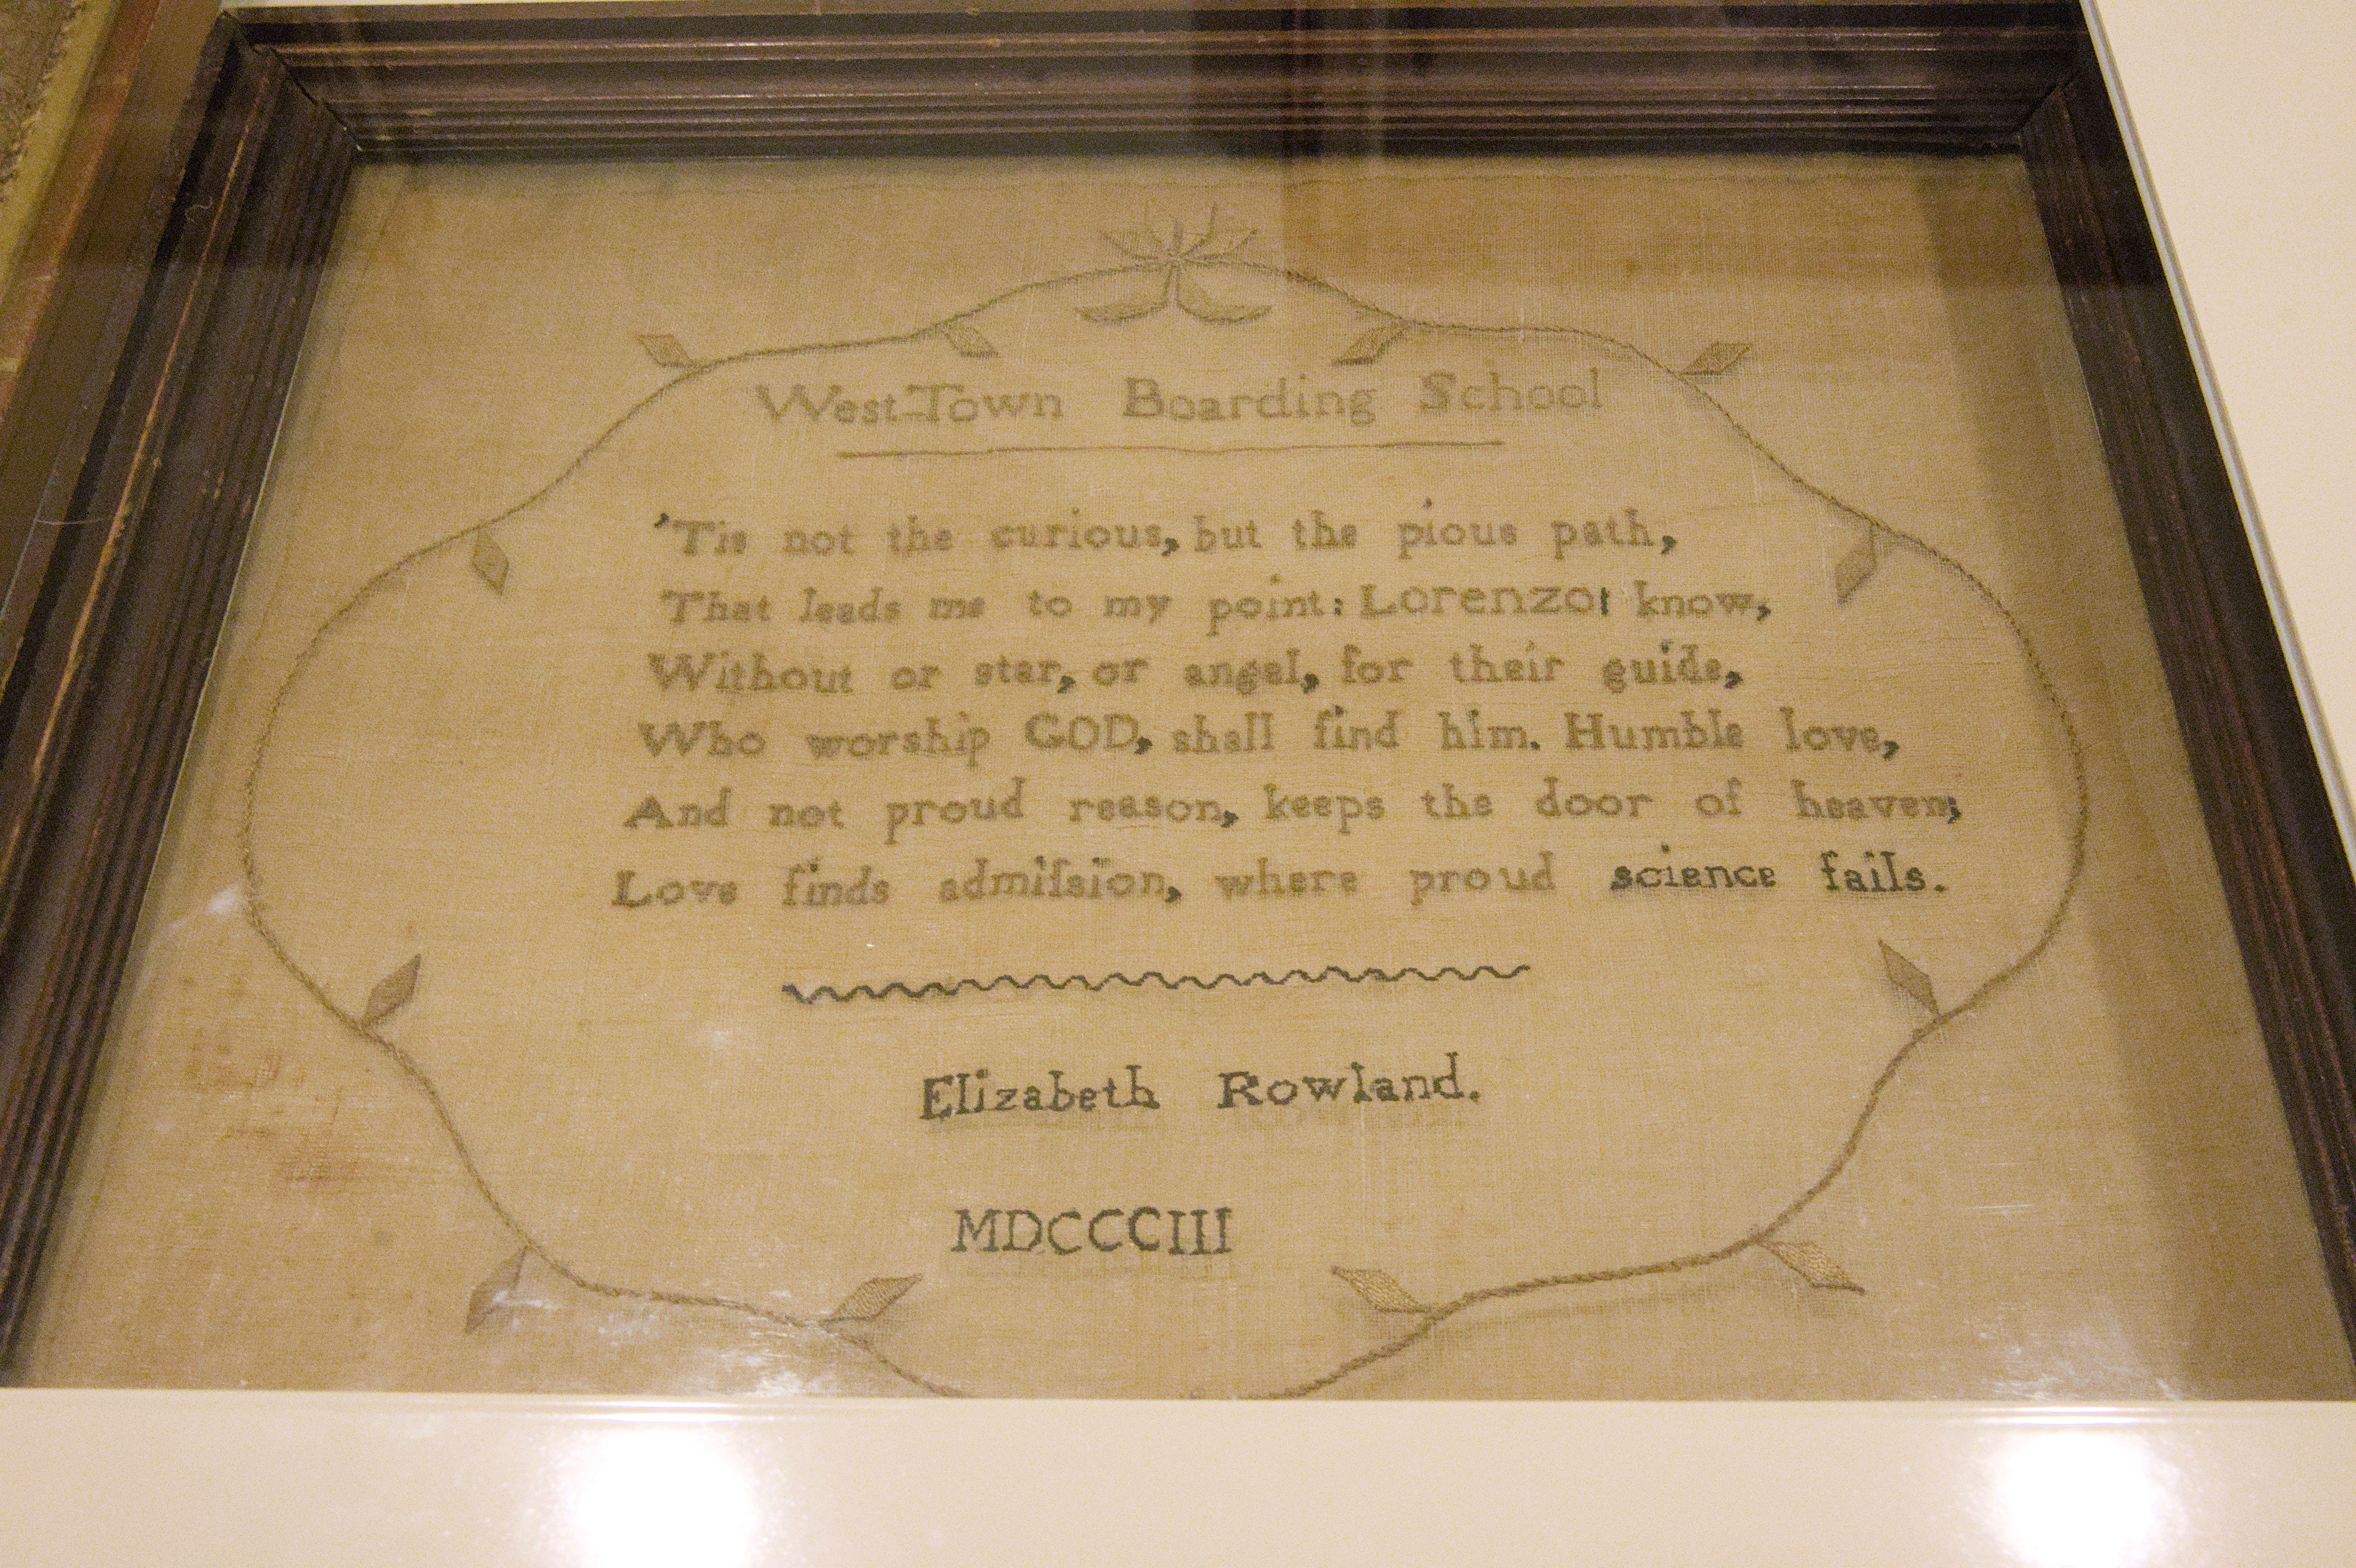 West-Town Boarding School
'Tis not the curious, but the pious path,
That leads me to my point: Lorenzo! know,
Without or star, or angel, for their guide,
Who worship GOD, shall find him. Humble love,
And not proud reason, keeps the door of heaven;
Love finds admiſsion, where proud science fails.
Elizabeth Rowland.
MDCCCIII